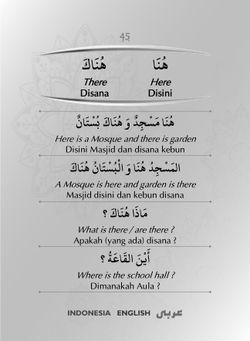 45
هُنَا هُنَاكَ
Here There
Disini Disana
هُنَا مَسْجِدٌ وَ هُنَاكَ بُسْتَانٌ
Here is a Mosque and there is garden
Disini Masjid dan disana kebun
المَسْجِدُ هُنَا وَ الْبُسْتَانُ هُنَاكَ
A Mosque is here and garden is there
Masjid disini dan kebun disana
مَاذَا هُنَاكَ ؟
What is there / are there ?
Apakah (yang ada) disana ?
أَيْنَ القَاعَةُ ؟
Where is the school hall ?
Dimanakah Aula ?
INDONESIA ENGLISH عربي